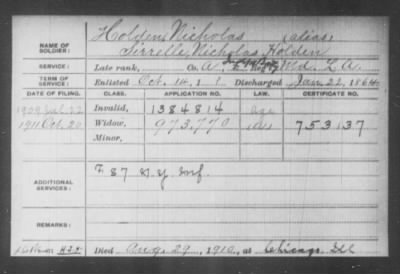 Holden, Nicholas alias
NAME OF SOLDIER: Tirrelle, Nicholas Holden
SERVICE: Late rank, Co. A, Ind. L. A.
TERM OF SERVICE: Enlisted Oct. 14, 1 Discharged Jan. 22, 1864
DATE OF FILING. CLASS. APPLICATION NO. LAW. CERTIFICATE NO.
Invalid, 1384814 age
1911 Oct. 20 Widow, 973,770 753137
Minor,
ADDITIONAL SERVICES: F. 87 N.Y. Inf.
REMARKS:
Died Aug. 29, 1910, at Chicago Ill